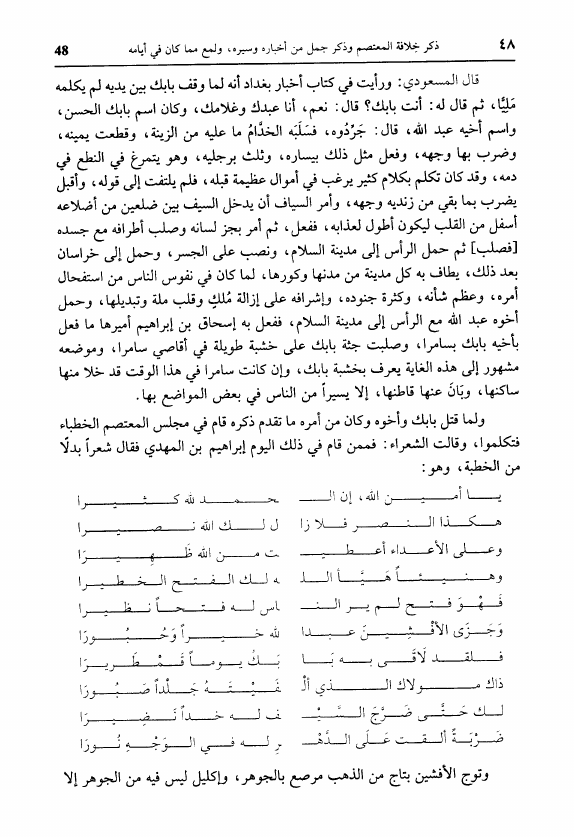 ٤٨ ذكر خلافة المعتصم وذكر جمل من أخباره وسيره، ولمع مما كان في أيامه 48
قال المسعودي: ورأيت في كتاب أخبار بغداد أنه لما وقف بابك بين يديه لم يكلمه
مَلِيًّا، ثم قال له: أنت بابك؟ قال: نعم، أنا عبدك وغلامك، وكان اسم بابك الحسن،
واسم أخيه عبد الله، قال: جَرِّدُوه، فسَلَبَه الخدَّامُ ما عليه من الزينة، وقطعت يمينه،
وضرب بها وجهه، وفعل مثل ذلك بيساره، وثلث برجليه، وهو يتمرغ في النطع في
دمه، وقد كان تكلم بكلام كثير يرغب في أموال عظيمة قبله، فلم يلتفت إلى قوله، وأقبل
يضرب بما بقي من زنديه وجهه، وأمر السياف أن يدخل السيف بين ضلعين من أضلاعه
أسفل من القلب ليكون أطول لعذابه، ففعل، ثم أمر بجز لسانه وصلب أطرافه مع جسده
[فصلب] ثم حمل الرأس إلى مدينة السلام، ونصب على الجسر، وحمل إلى خراسان
بعد ذلك، يطاف به كل مدينة من مدنها وكورها، لما كان في نفوس الناس من استفحال
أمره، وعظم شأنه، وكثرة جنوده، وإشرافه على إزالة مُلكٍ وقلب ملة وتبديلها، وحمل
أخوه عبد الله مع الرأس إلى مدينة السلام، ففعل به إسحاق بن إبراهيم أميرها ما فعل
بأخيه بابك بسامرا، وصلبت جثة بابك على خشبة طويلة في أقاصي سامرا، وموضعه
مشهور إلى هذه الغاية يعرف بخشبة بابك، وإن كانت سامرا في هذا الوقت قد خلا منها
ساكنها، وبَانَ عنها قاطنها، إلا يسيراً من الناس في بعض المواضع بها.
ولما قتل بابك وأخوه وكان من أمره ما تقدم ذكره قام في مجلس المعتصم الخطباء
فتكلموا، وقالت الشعراء: فممن قام في ذلك اليوم إبراهيم بن المهدي فقال شعراً بدلًا
من الخطبة، وهو:
يا أمين الله، إن الـ ـحمد لله كثيرا
هكذا النصر فلا زا ل لك الله نصيرا
وعلى الأعداء أعطيـ ـت من الله ظَهِيرَا
وهنيئاً هَيَّأ اللـ ـه لك الفتح الخطيرا
فَهْوَ فتح لم ير النـ ـاس له فتحاً نظيرا
وَجَزَى الأَفْشِينَ عبدا لله خيراً وَحُبُورَا
فلقد لَاقَى به بَا بَكُ يوماً قَمْطَرِيرَا
ذاك مولاك الذي ألْـ ـفَيْتَهُ جَلْداً صَبُورَا
لك حَتَّى ضَرَّجَ السَّيْـ ـف له خداً نَضِيرَا
ضَرْبَةً ألقت عَلَى الدَّهْـ ـرِ له في الوَجْهِ نُورَا
وتوج الأفشين بتاج من الذهب مرصع بالجوهر، وإكليل ليس فيه من الجوهر إلا